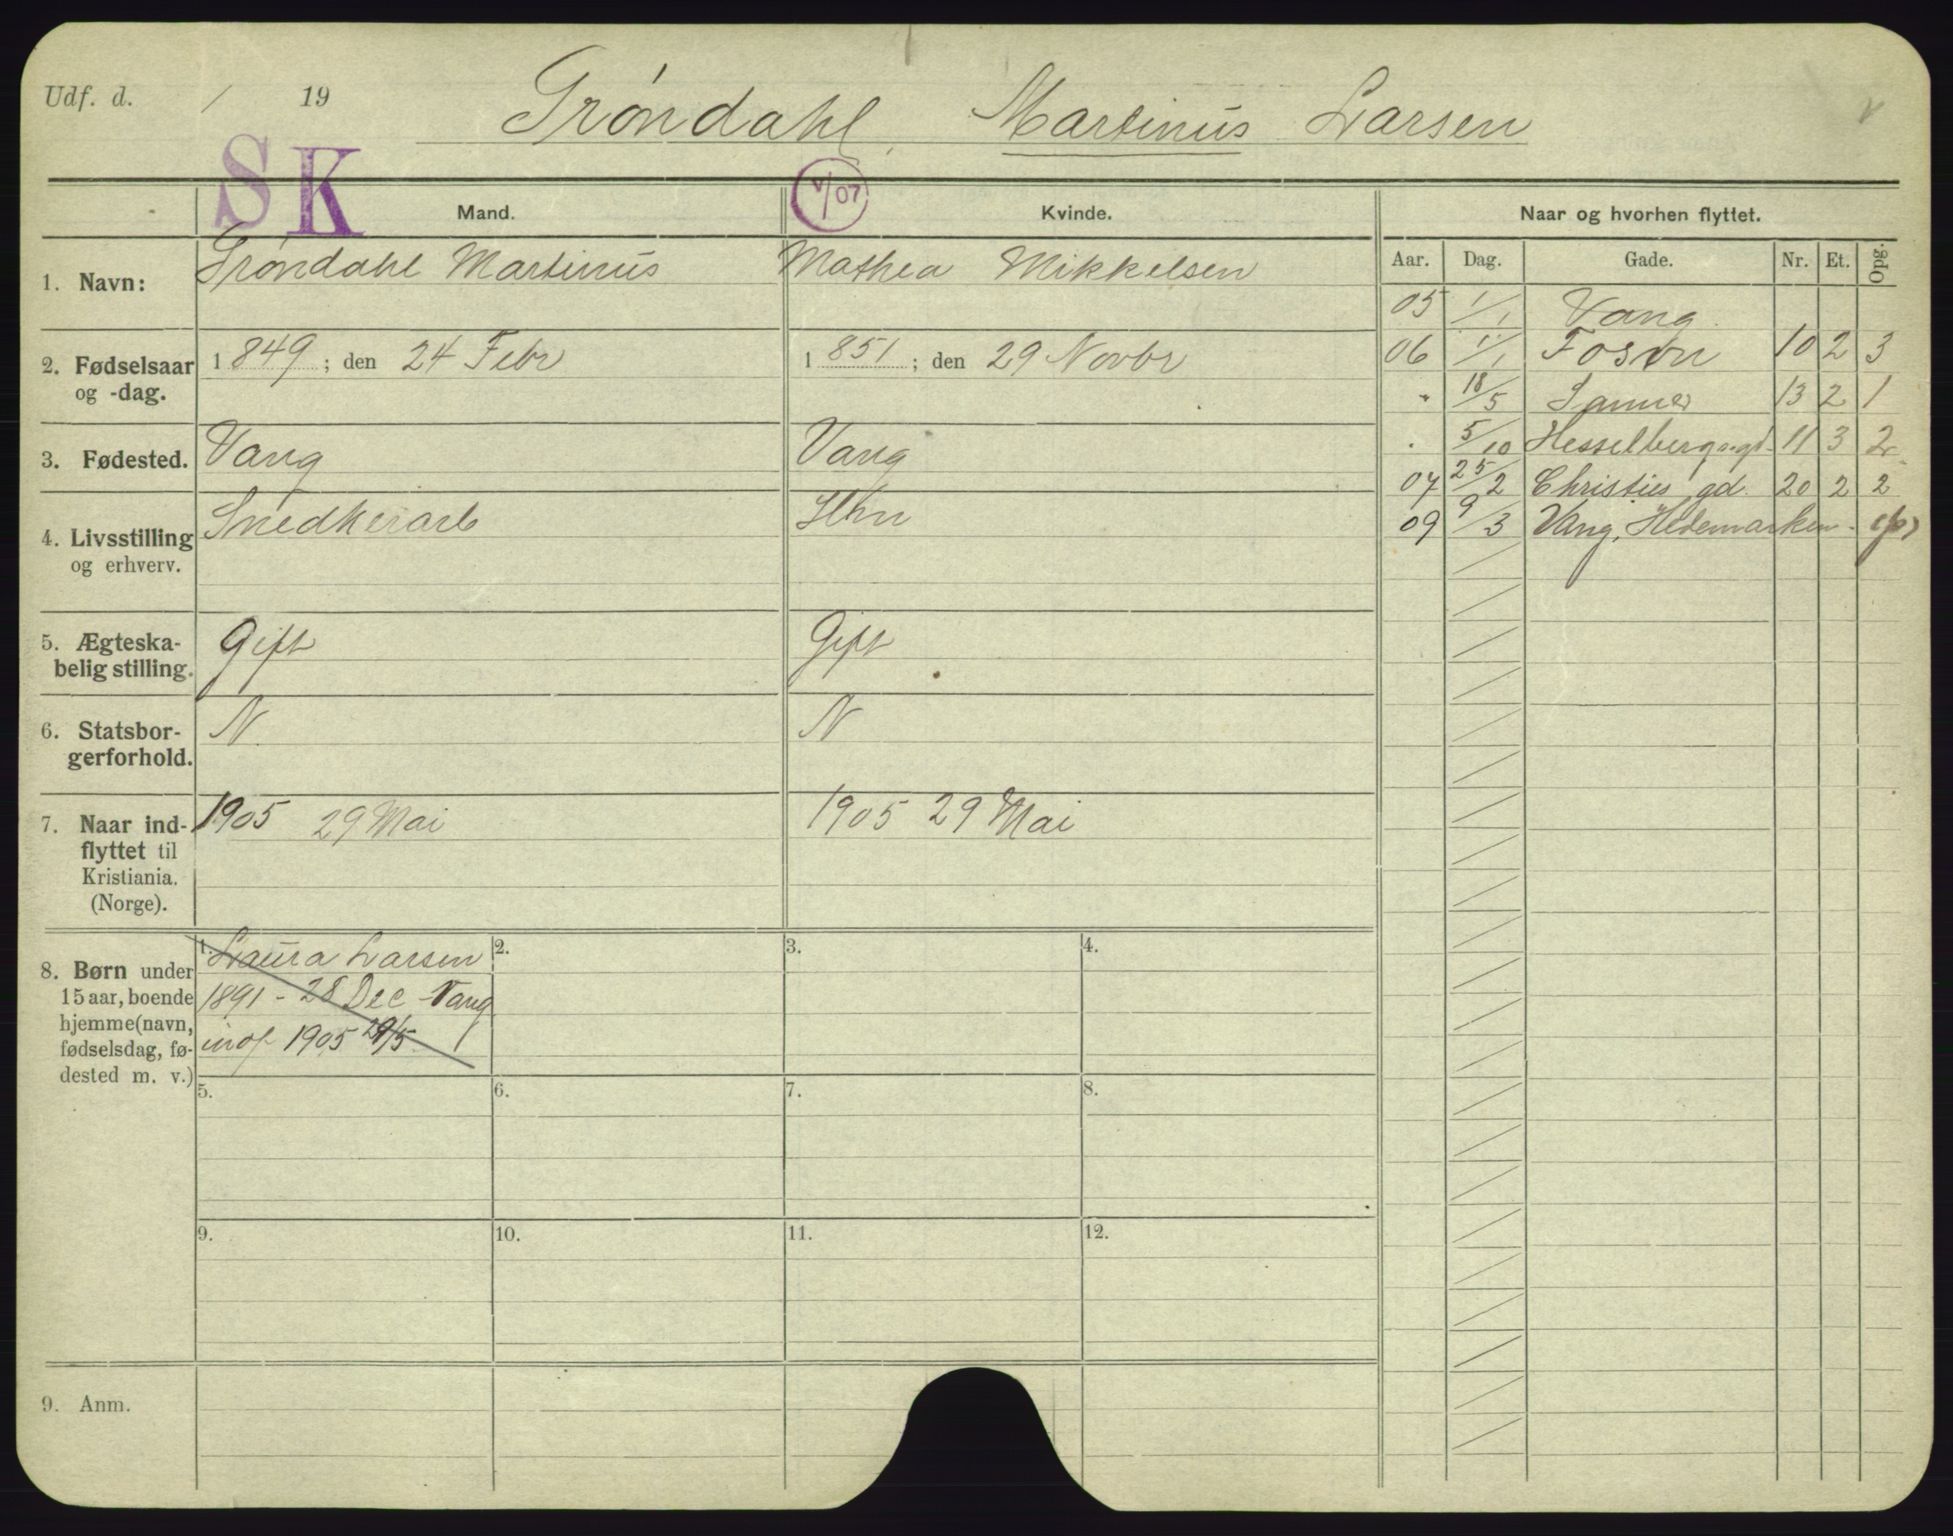 Udf. d. / 19
Trøndahl, Martinus Larsen
SK
V/07
Mand.
Kvinde.
Naar og hvorhen flyttet.
Aar. Dag. Gade. Nr. Et. Opg.
1. Navn: Trøndahl Martinus Mathea Mikkelsen
2. Fødselsaar og -dag. 1849; den 24 Febr 1851; den 29 Novbr
3. Fødested. Vang Vang
4. Livsstilling og erhverv. Snedkerarb Hhn
5. Ægteska-
belig stilling. Gift Gift
6. Statsbor-
gerforhold. N N
7. Naar ind-
flyttet til
Kristiania.
(Norge). 1905 29 Mai 1905 29 Mai
05 1/1 Vang
06 1/1 Fosvn 10 2 3
" 18/5 Sanner 13 2 1
" 5/10 Hesselbergsgt. 11 3 2
07 25/2 Christies gd. 20 2 2
09 9/3 Vang, Hedemarken
8. Børn under
15 aar, boende
hjemme (navn,
fødselsdag, fø-
dested m. v.)
1. Laura Larsen
1891 - 28 Dec Vang
1905 29/5
2.
3.
4.
5.
6.
7.
8.
9.
10.
11.
12.
9. Anm.